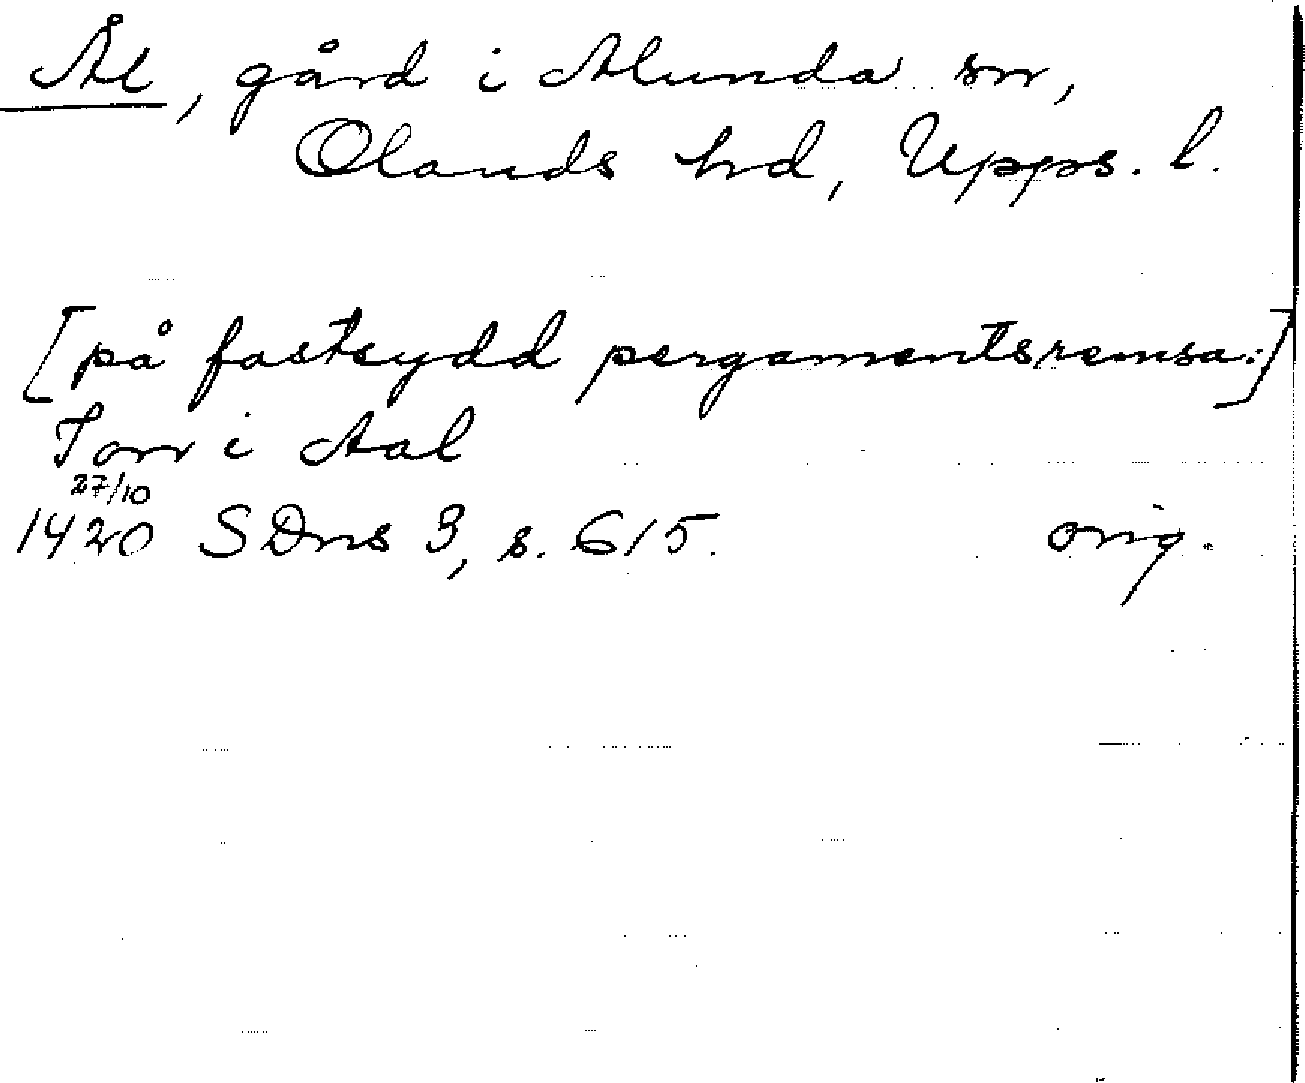 Ål, gård i Alunda sn,
Olands hd, Upps. l.
[på fastsydd pergamentsremsa:]
Jorr i Aal
27/10
1420 SDns 3, s. 615. orig.